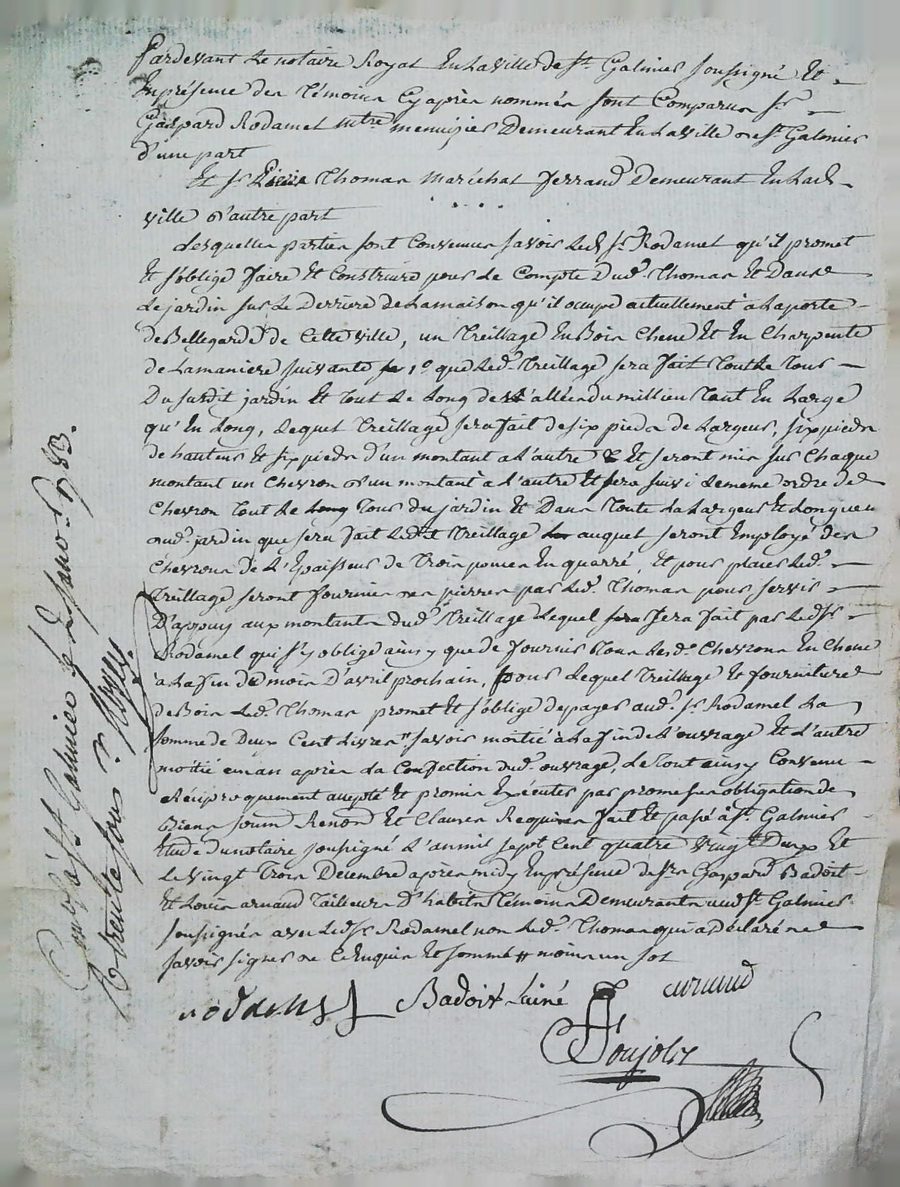 Pardevant Le notaire Royal En La ville de St. Galmier soussigné Et
En présence des Témoins Cy après nommés sont Comparus sr.
Gaspard Rodamel mtre. menuizier Demeurant En La ville de St. Galmier
d'une part
Et sr. Thomas maréchal ferrand Demeurant En lad.
ville d'autre part
Lesquelles parties sont Convenues savoir Led. sr. Rodamel qu'il promet
Et s'oblige faire Et Construire pour Le Compte dud. Thomas Et Dans
Le jardin sur Le Derriere de La maison qu'il occupe actuellement à La porte
de Bellegarde de Cette ville, un Treillage En Bois Chene Et En Charpente
de La maniere suivante 1o. que Led. Treillage sera fait Tout Le Tour
Du susdit jardin Et Tout Le Long de L'allée du millieu Tant En Large
qu'En Long, Lequel Treillage sera fait de six pieds de Largeur, six pieds
de hauteur Et six pieds d'un montant a L'autre Et seront mis sur Chaque
montant un Chevron d'un montant à L'autre Et sera suivi Le meme ordre de
Chevron Tout Le Tour du jardin Et Dans Toute La Largeur Et Longueur
dud. jardin que sera fait Led. Treillage auquel seront Employé des
Chevrons de L'Epaisseur de Trois pouces En quarré, Et pour placer Led.
Treillage seront fournies des pierres par Led. Thomas pour servir
D'appuy aux montants dud. Treillage Lequel sera fait par Led. sr.
Rodamel qui s'y oblige ainsy que de fournir Tous Lesd. Chevrons En Chene
a La fin de mois D'avril prochain, pour Lequel Treillage Et fourniture
de Bois Led. Thomas promet Et s'oblige de payer aud. sr. Rodamel La
somme de Deux Cent Livres savoir moitié a La fin de L'ouvrage Et L'autre
moitié un an après La Confection dud. ouvrage, Le Tout ainsy Convenu
Réciproquement accepté Et promis Exécuter par promesses obligation de
Biens soum. Renon. Et Clauses Requises fait Et passé à St. Galmier
Etude du notaire soussigné L'an mil sept Cent quatre vingt Deux Et
Le vingt Trois Décembre après midy En présence de srs. Gaspard Badoit
Et Louis arnaud Tailleurs D'habits Témoins Demeurants aud. St. Galmier
soussignés avec Led. sr. Rodamel non Led. Thomas qui a déclaré ne
savoir signer de Ce Enquis Et sommé moins un sol
rodamel Badoit Lainé arnaud
Ponjolis
Con. à St. Galmier Le janv. 1783.
R. trente sous